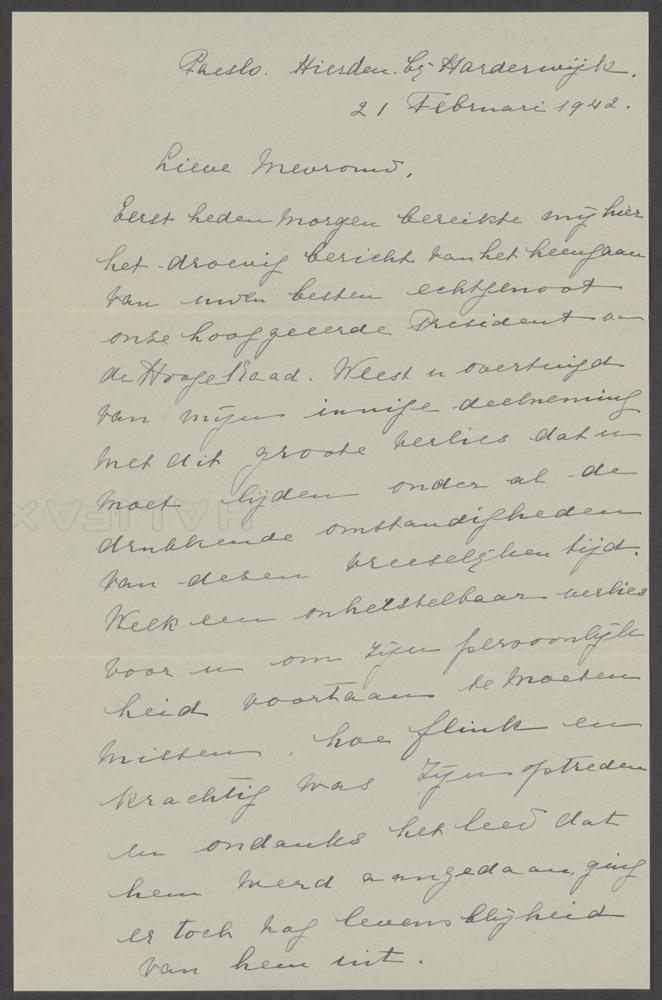 Paeslo. Hierden. bij Harderwijk.
21 Februari 1942.
Lieve Mevrouw,
Eerst heden morgen bereikte mij hier
het droevig bericht van het heengaan
van uwen besten echtgenoot
onze hooggeeerde President van
de Hooge Raad. Weest u overtuigd
van mijn innige deelneming
met dit groote verlies dat u
moet lijden onder al de
drukkende omstandigheden
van dezen vreeselijken tijd.
Welk een onherstelbaar verlies
voor u om zijn persoonlijk
heid voortaan te moeten
missen, hoe flink en
krachtig was zijn optreden
en ondanks het leed dat
hem werd aangedaan, ging
er toch nog levensblijheid
van hem uit.
HALIFAX